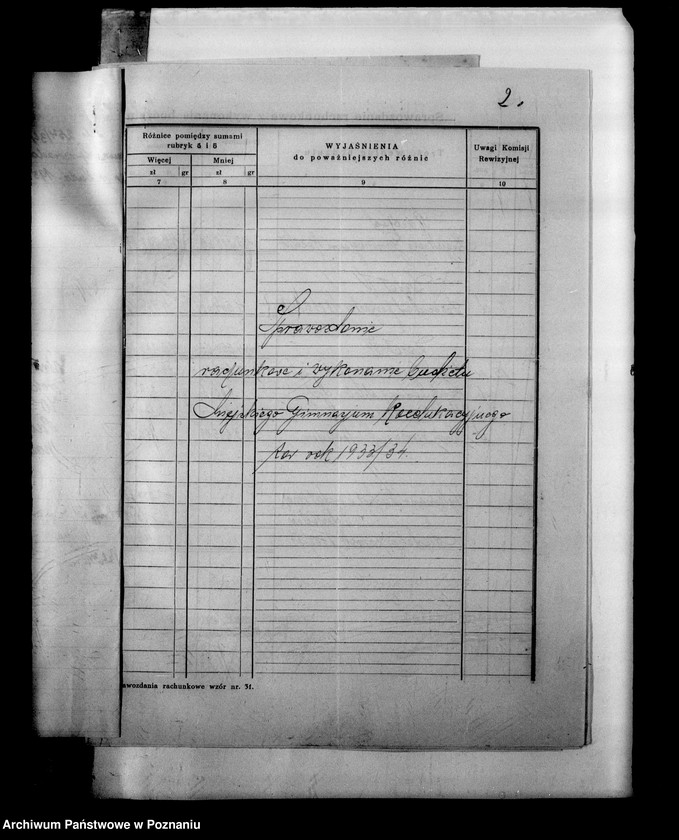 2.
Różnice pomiędzy sumami
rubryk 5 i 6
WYJAŚNIENIA
do poważniejszych różnic
Uwagi Komisji
Rewizyjnej
Więcej Mniej
zł gr zł gr
7 8 9 10
Sprawozdanie
rachunkowe i wykonanie budżetu
Miejskiego Gimnazjum Koedukacyjnego
za rok 1933/34.
awozdania rachunkowe wzór nr. 31.
Archiwum Państwowe w Poznaniu